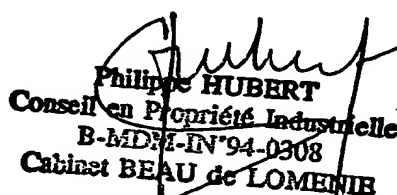 Hubert
Philippe HUBERT
Conseil en Propriété Industrielle
B-MDM-IN°94-0308
Cabinet BEAU de LOMENIE